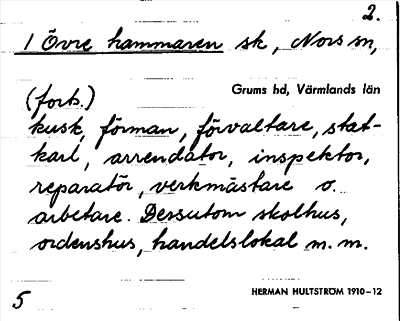 2.
1 Övre hammaren sk, Nors sn,
Grums hd, Värmlands län
(forts.)
kusk, förman, förvaltare, stat-
karl, arrendator, inspektor,
reparatör, verkmästare o.
arbetare. Dessutom skolhus,
ordenshus, handelslokal m. m.
5
HERMAN HULTSTRÖM 1910-12